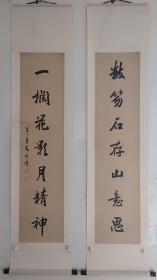 数笏石存山意思
一栏花影月精神